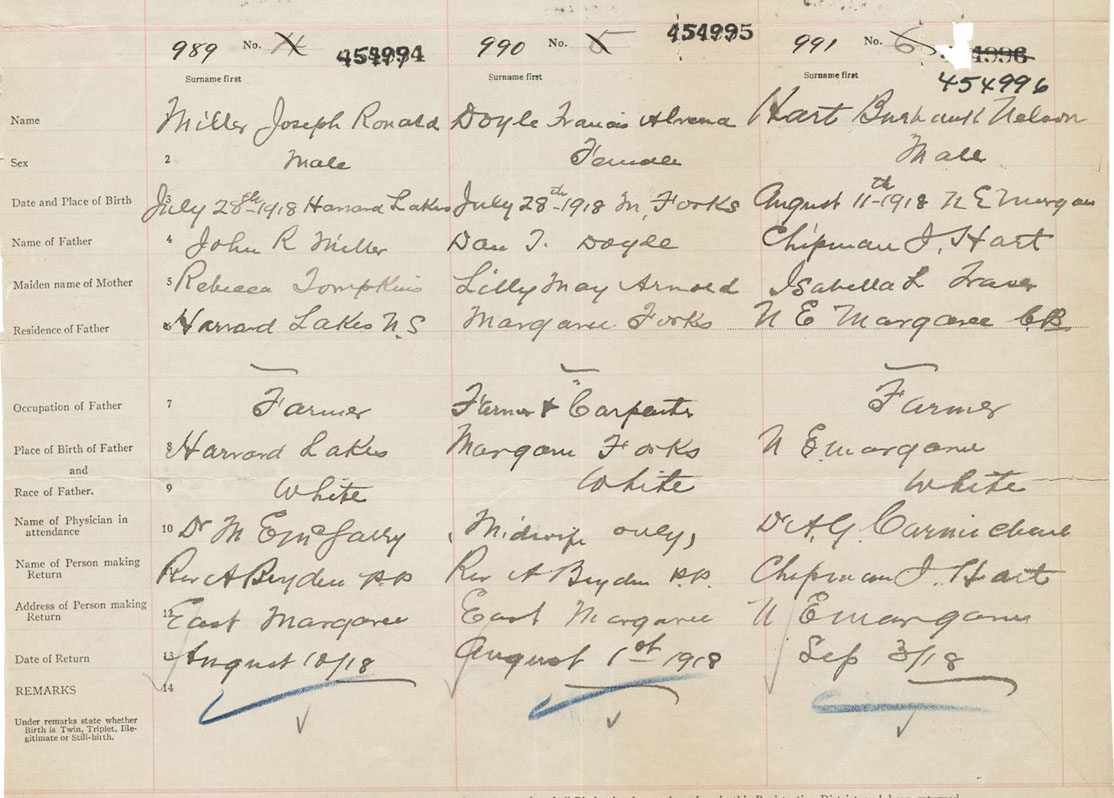 989 No. 454994 990 No. 5 454995 991 No. 6 4996
Surname first Surname first Surname first 454996
Name Miller Joseph Ronald Doyle Francis Hart Burbank Nelson
Sex 2 Male Female Male
Date and Place of Birth 3 July 28th-1918 Harvard Lakes July 28th-1918 M. Forks August 11th-1918 N E Margaree
Name of Father 4 John R Miller Dan J. Doyle Chipman J. Hart
Maiden name of Mother 5 Rebecca Tompkins Lilly May Arnold Isabella L Fraser
Residence of Father 6 Harvard Lakes N.S Margaree Forks N E Margaree C.B.
Occupation of Father 7 Farmer Farmer & Carpenter Farmer
Place of Birth of Father 8 Harvard Lakes Margaree Forks N E Margaree
and
Race of Father. 9 White White White
Name of Physician in attendance 10 Dr M E McGarry Midwife only, Dr A.G. Carmichael
Name of Person making Return Rev A Bryden P.P. Rev A Bryden P.P. Chipman J. Hart
Address of Person making Return 12 East Margaree East Margaree N E Margaree
Date of Return 13 August 10/18 August 1st 1918 Sep 3/18
REMARKS 14
Under remarks state whether
Birth is Twin, Triplet, Ille-
gitimate or Still-birth.